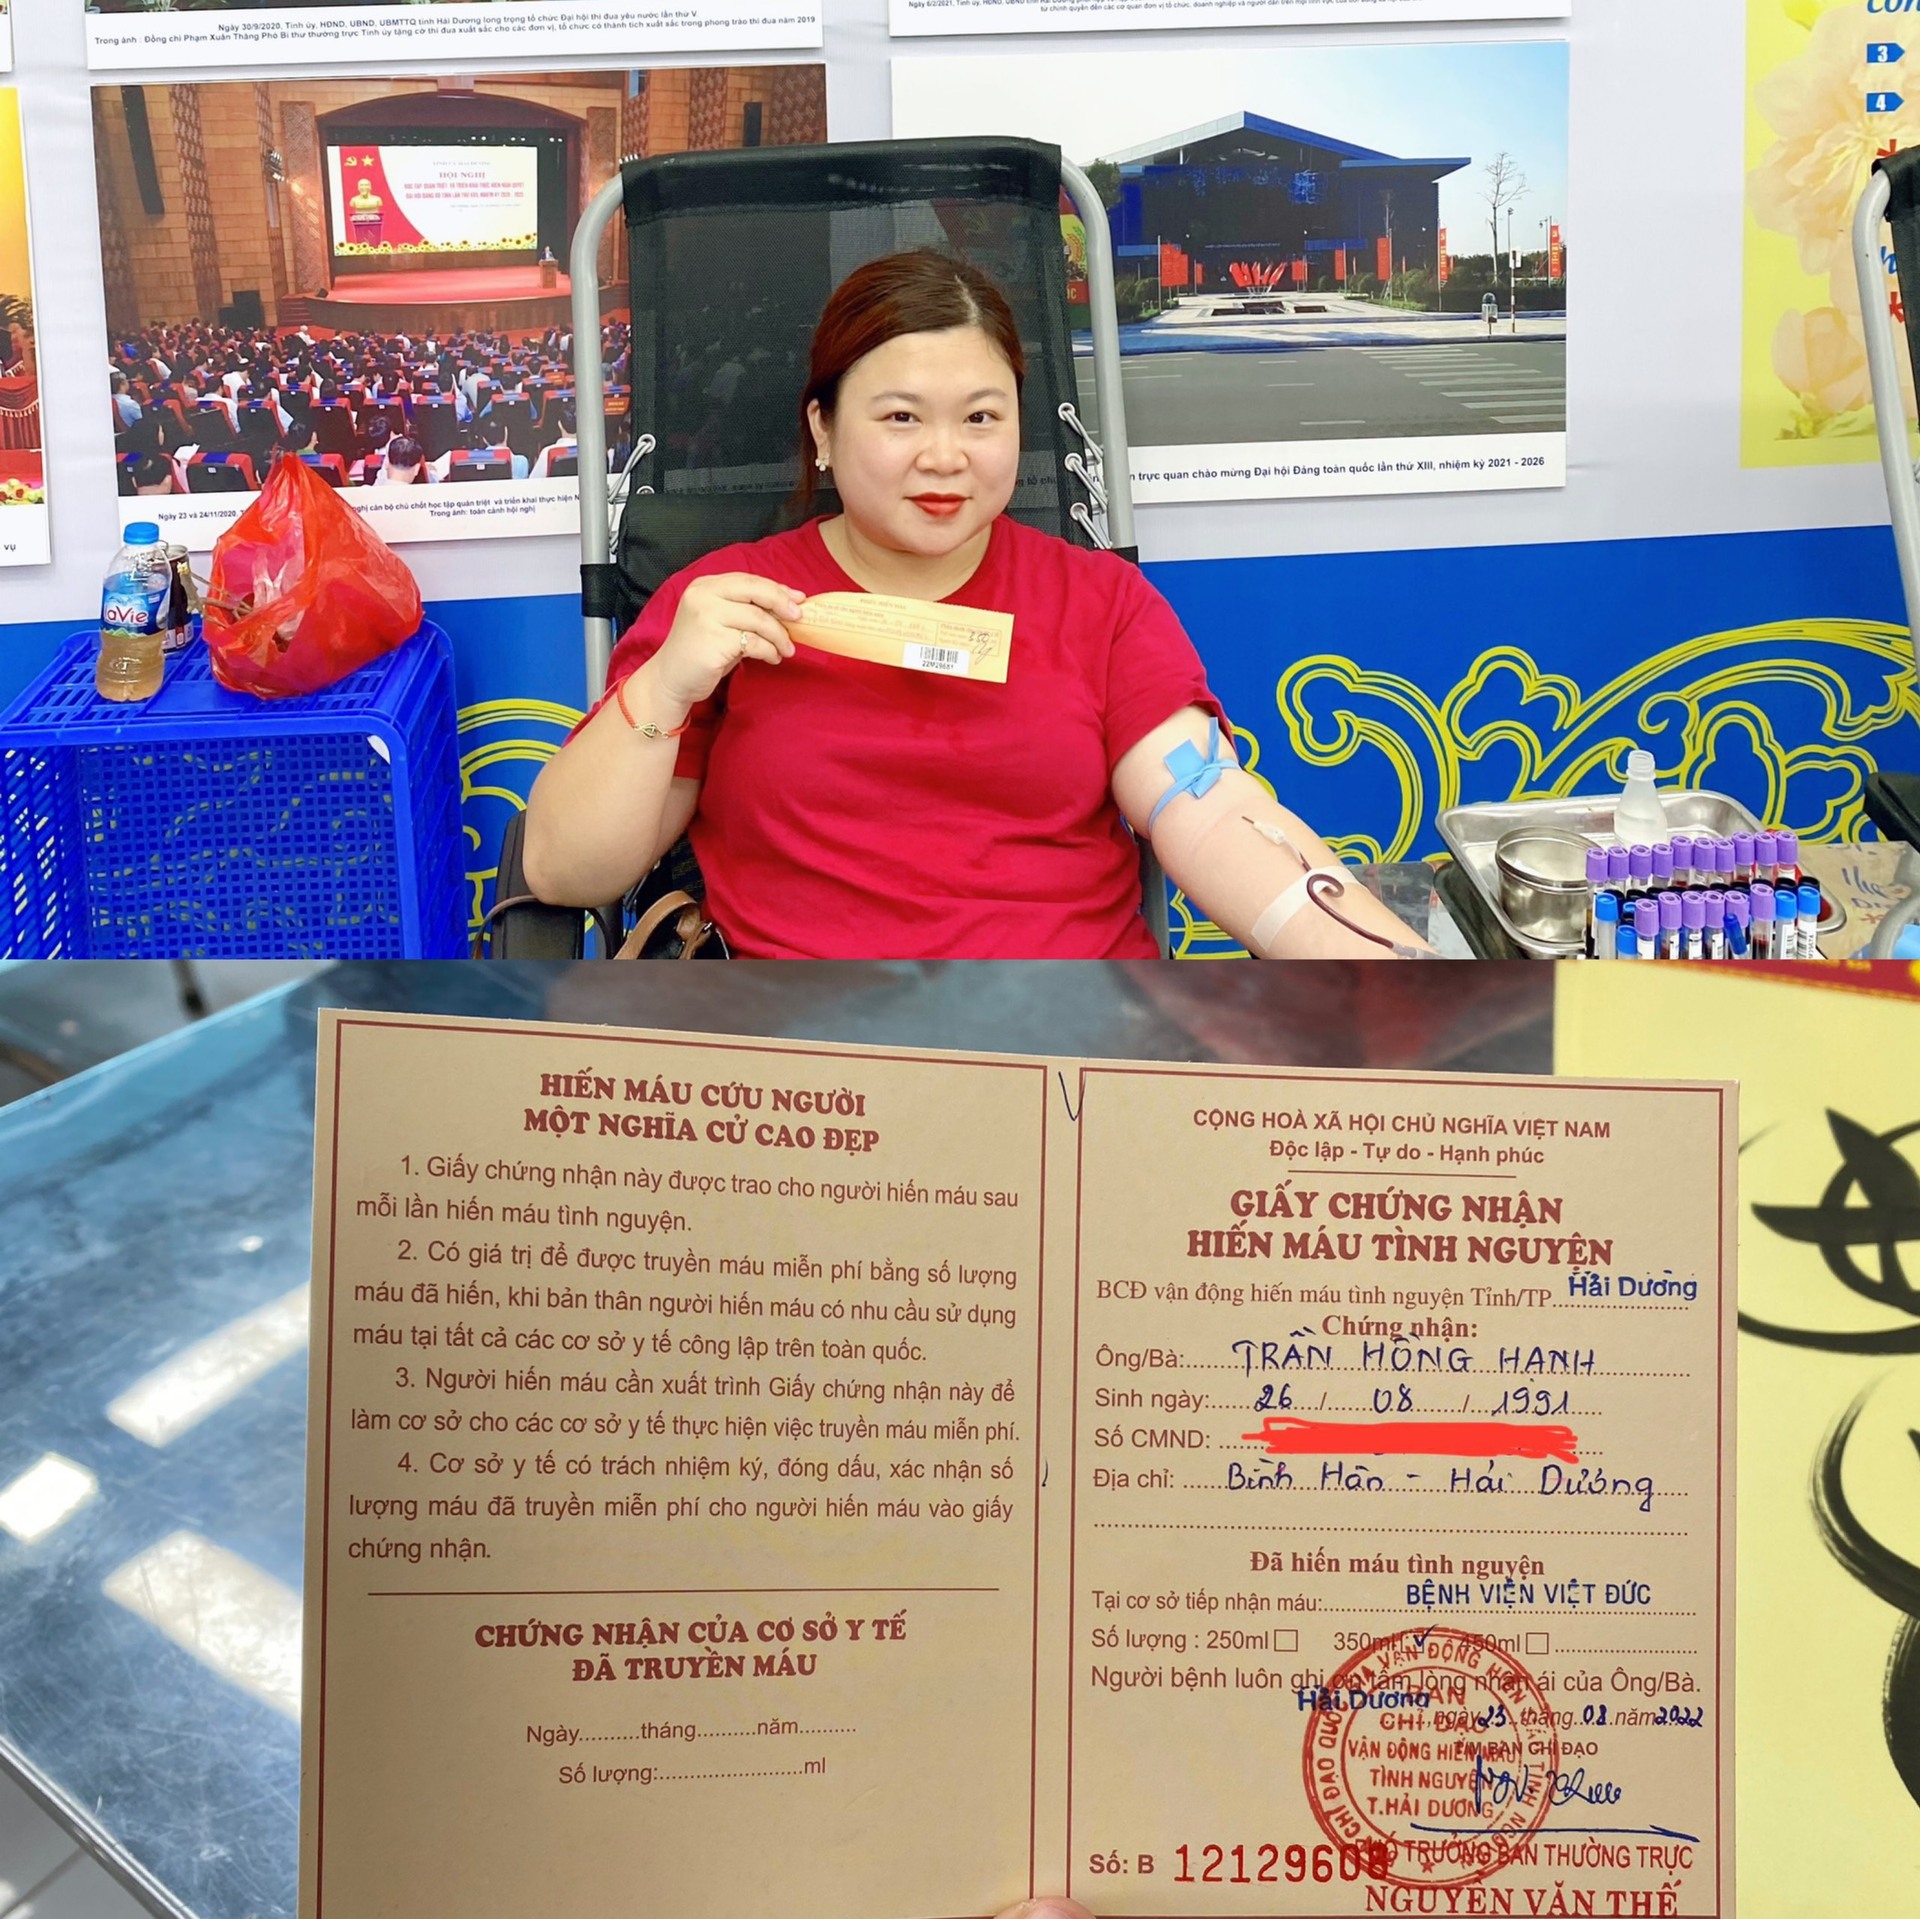 Ngày 30/9/2020, Tỉnh ủy, HĐND, UBND, UBMTTQ tỉnh Hải Dương long trọng tổ chức Đại hội thi đua yêu nước lần thứ V
Trong ảnh : Đồng chí Phạm Xuân Thăng Phó Bí thư thường trực Tỉnh ủy tặng cờ thi đua xuất sắc cho các đơn vị, tổ chức có thành tích xuất sắc trong phong trào thi đua năm 2019
3
4
HỘI NGHỊ
vụ
Ngày 23 và 24/11/2020.
nghị cán bộ chủ chốt học tập quán triệt và triển khai thực hiện
Trong ảnh: toàn cảnh hội nghị
trực quan chào mừng Đại hội Đảng toàn quốc lần thứ XIII, nhiệm kỳ 2021 - 2026
LaVie
350
22M29681
HIẾN MÁU CỨU NGƯỜI
MỘT NGHĨA CỬ CAO ĐẸP
1. Giấy chứng nhận này được trao cho người hiến máu sau
mỗi lần hiến máu tình nguyện.
2. Có giá trị để được truyền máu miễn phí bằng số lượng
máu đã hiến, khi bản thân người hiến máu có nhu cầu sử dụng
máu tại tất cả các cơ sở y tế công lập trên toàn quốc.
3. Người hiến máu cần xuất trình Giấy chứng nhận này để
làm cơ sở cho các cơ sở y tế thực hiện việc truyền máu miễn phí.
4. Cơ sở y tế có trách nhiệm ký, đóng dấu, xác nhận số
lượng máu đã truyền miễn phí cho người hiến máu vào giấy
chứng nhận.
CHỨNG NHẬN CỦA CƠ SỞ Y TẾ
ĐÃ TRUYỀN MÁU
Ngày..........tháng..........năm..........
Số lượng:........................ml
CỘNG HOÀ XÃ HỘI CHỦ NGHĨA VIỆT NAM
Độc lập - Tự do - Hạnh phúc
GIẤY CHỨNG NHẬN
HIẾN MÁU TÌNH NGUYỆN
BCĐ vận động hiến máu tình nguyện Tỉnh/TP Hải Dương
Chứng nhận:
Ông/Bà: TRẦN HỒNG HẠNH
Sinh ngày: 26 / 08 / 1991
Số CMND:
Địa chỉ: Bình Hàn - Hải Dương
Đã hiến máu tình nguyện
Tại cơ sở tiếp nhận máu: BỆNH VIỆN VIỆT ĐỨC
Số lượng : 250ml 350ml 450ml
Người bệnh luôn ghi ơn tấm lòng nhân ái của Ông/Bà.
Hải Dương, ngày 23 tháng 08 năm 2022
T/M BAN CHỈ ĐẠO
BAN
CHỈ ĐẠO
VẬN ĐỘNG HIẾN MÁU
TÌNH NGUYỆN
T.HẢI DƯƠNG
PHÓ TRƯỞNG BAN THƯỜNG TRỰC
Số: B 12129608
NGUYỄN VĂN THẾ